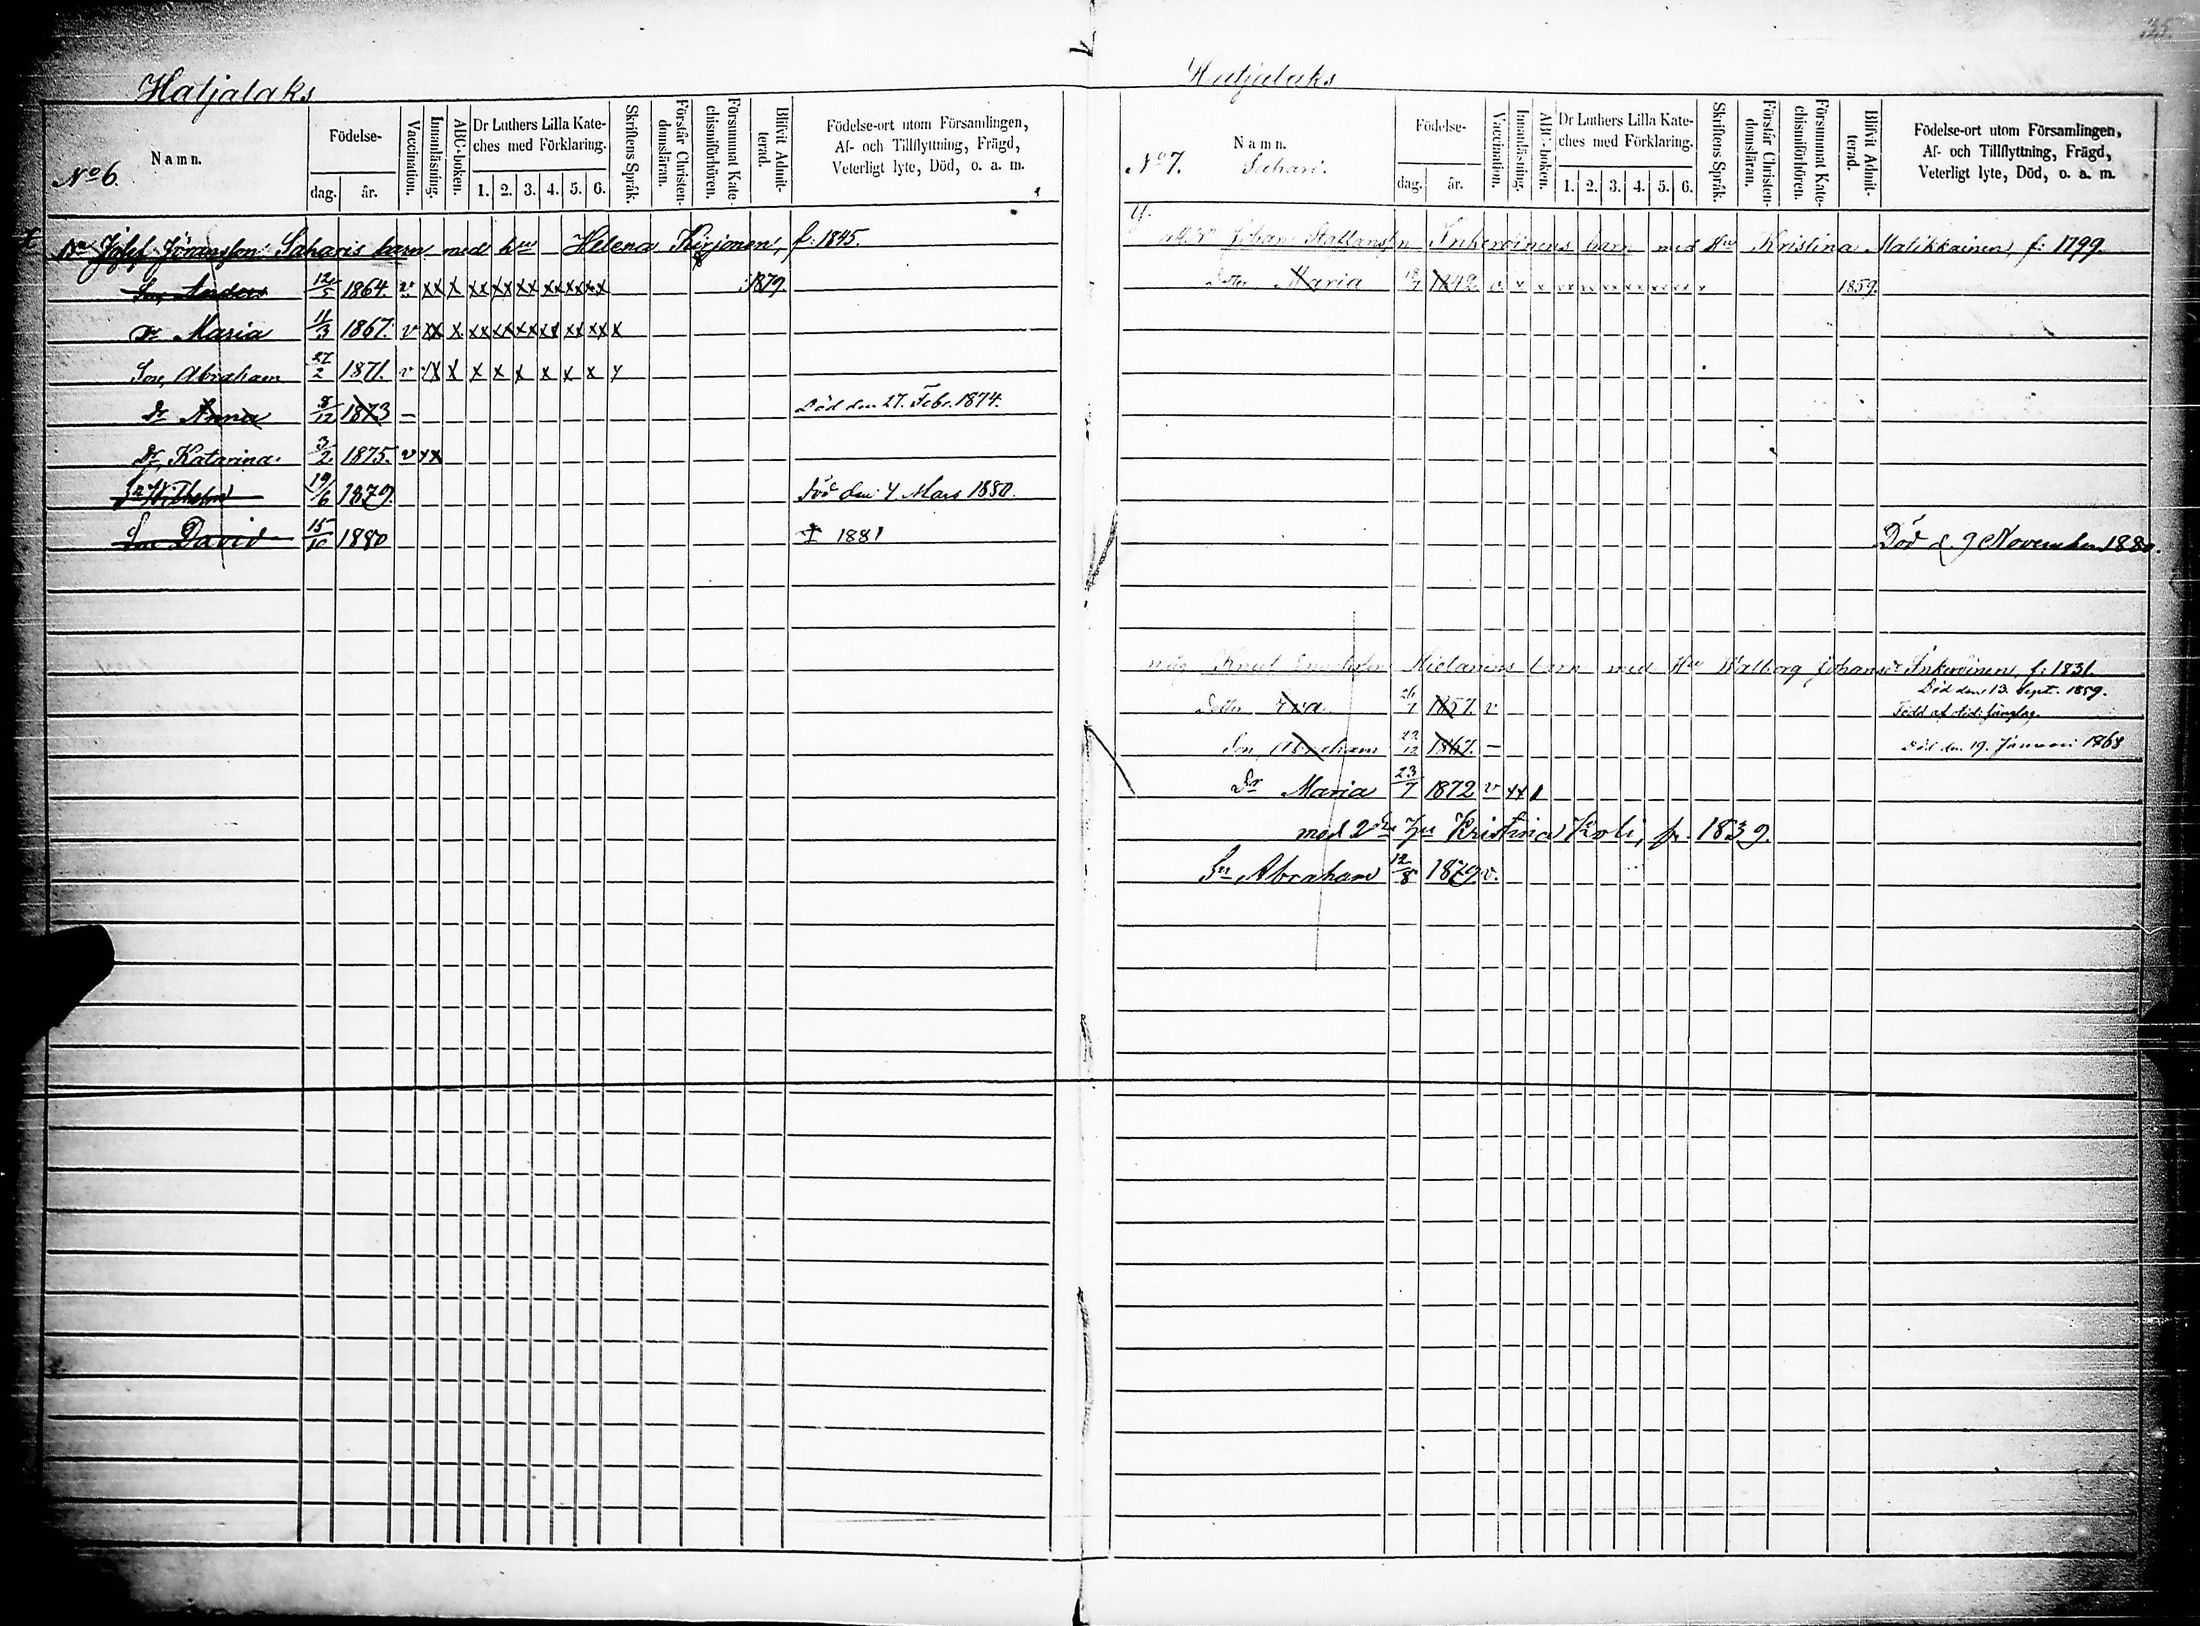 Haljalaks
No 6.
Namn.
Födelse-
dag. år.
Vaccination.
Innanläsning.
ABC-boken.
Dr Luthers Lilla Kateches med Förklaring.
1. 2. 3. 4. 5. 6.
Skriftens Språk.
Förstår Christendomsläran.
Försummat Katechismiförhören.
Blifvit Admitterad.
Födelse-ort utom Församlingen,
Af- och Tillflyttning, Frägd,
Veterligt lyte, Död, o. a. m.
Josef Göransson Saharis barn med hu Helena Kirjonen, f. 1845.
Son, Anders 12/5 1864. v xx x xx xx xx xx xx xx 1879
Dr Maria 11/3 1867. v xx x xx xx xx xx xx xx x
Son, Abraham 27/2 1871. v x x x x x x x x
Dr Anna 8/12 1873 – Död den 27. Febr. 1874.
Dr, Katarina. 3/2 1875. v xx
Sn Wilhelm 19/6 1879. Död den 4 Mars 1880.
Son David 15/10 1880 † 1881
Haljalaks
No 7.
Namn.
Sehari.
Födelse-
dag. år.
Vaccination.
Innanläsning.
ABC-boken.
Dr Luthers Lilla Kateches med Förklaring.
1. 2. 3. 4. 5. 6.
Skriftens Språk.
Förstår Christendomsläran.
Försummat Katechismiförhören.
Blifvit Admitterad.
Födelse-ort utom Församlingen,
Af- och Tillflyttning, Frägd,
Veterligt lyte, Död, o. a. m.
Johan Inkeroinens barn med Hu Kristina Matikkainen, f: 1799.
Dotter Maria 1842 v x x xx xx xx xx xx x 1859.
Död d. 9 November 1880.
måg Knut Hietanens barn med Hu Walborg Johansdr Inkeroinen, f: 1831.
Död den 13. Sept. 1859.
Dotter Eva 26/7 1857. v
Son, Abraham 22/12 1867. – Död den 19. Januari 1868
Dr Maria 23/7 1872 v xx
med 2dra hu Kristina Koli, f. 1839.
Sn Abraham 12/8 1879. v.